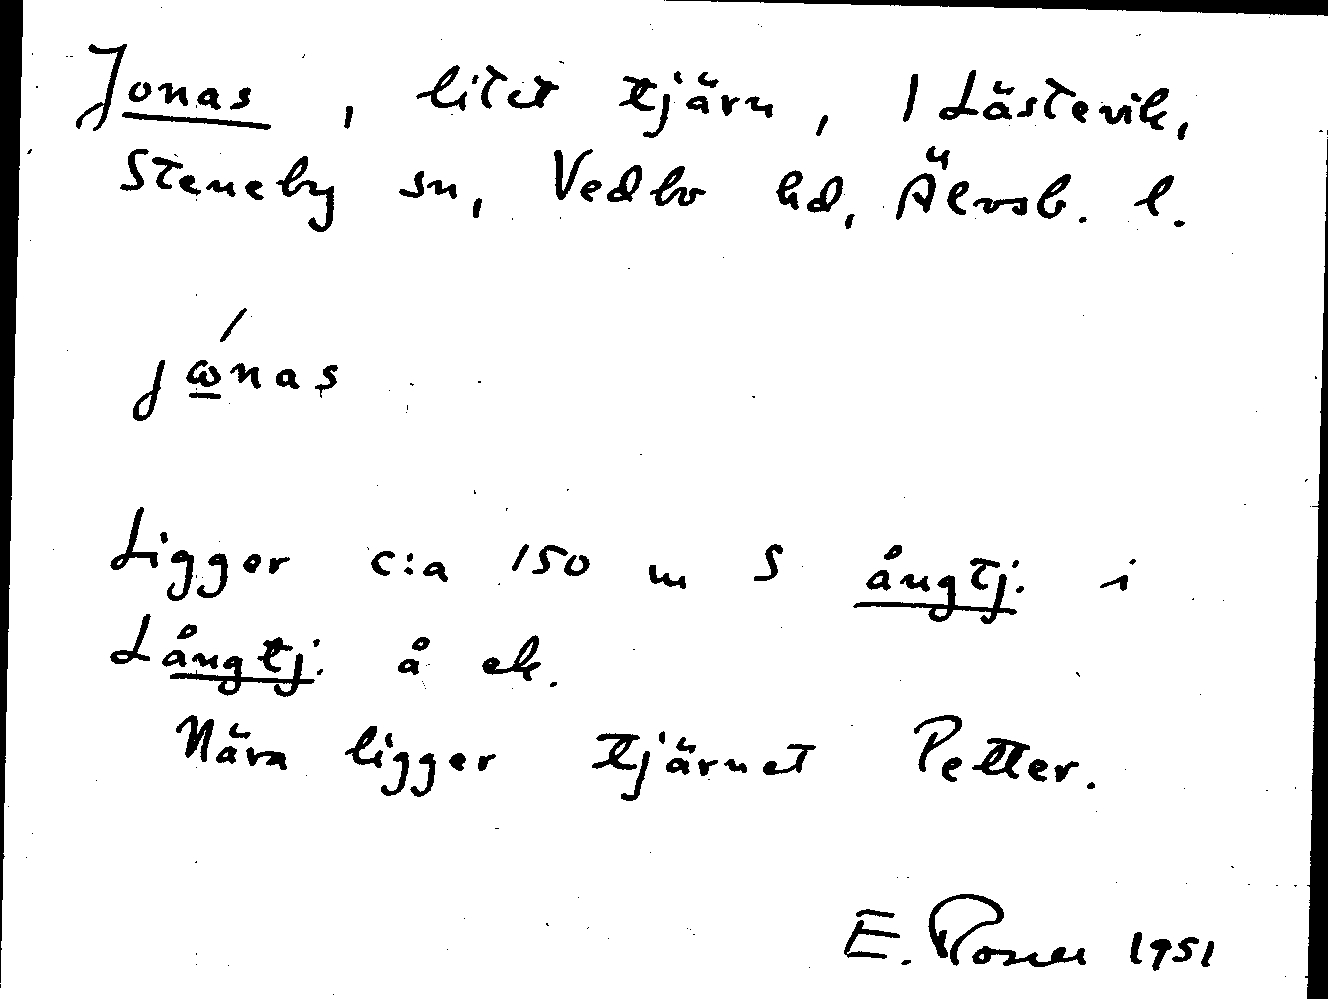 Jonas, litet tjärn, 1 Lästevik,
Steneby sn, Vedbo hd, Älvsb. l.
jώnas
Ligger c:a 150 m S ångtj. i
Långtj. å ek.
Nära ligger tjärnet Petter.
E. Rosen 1951